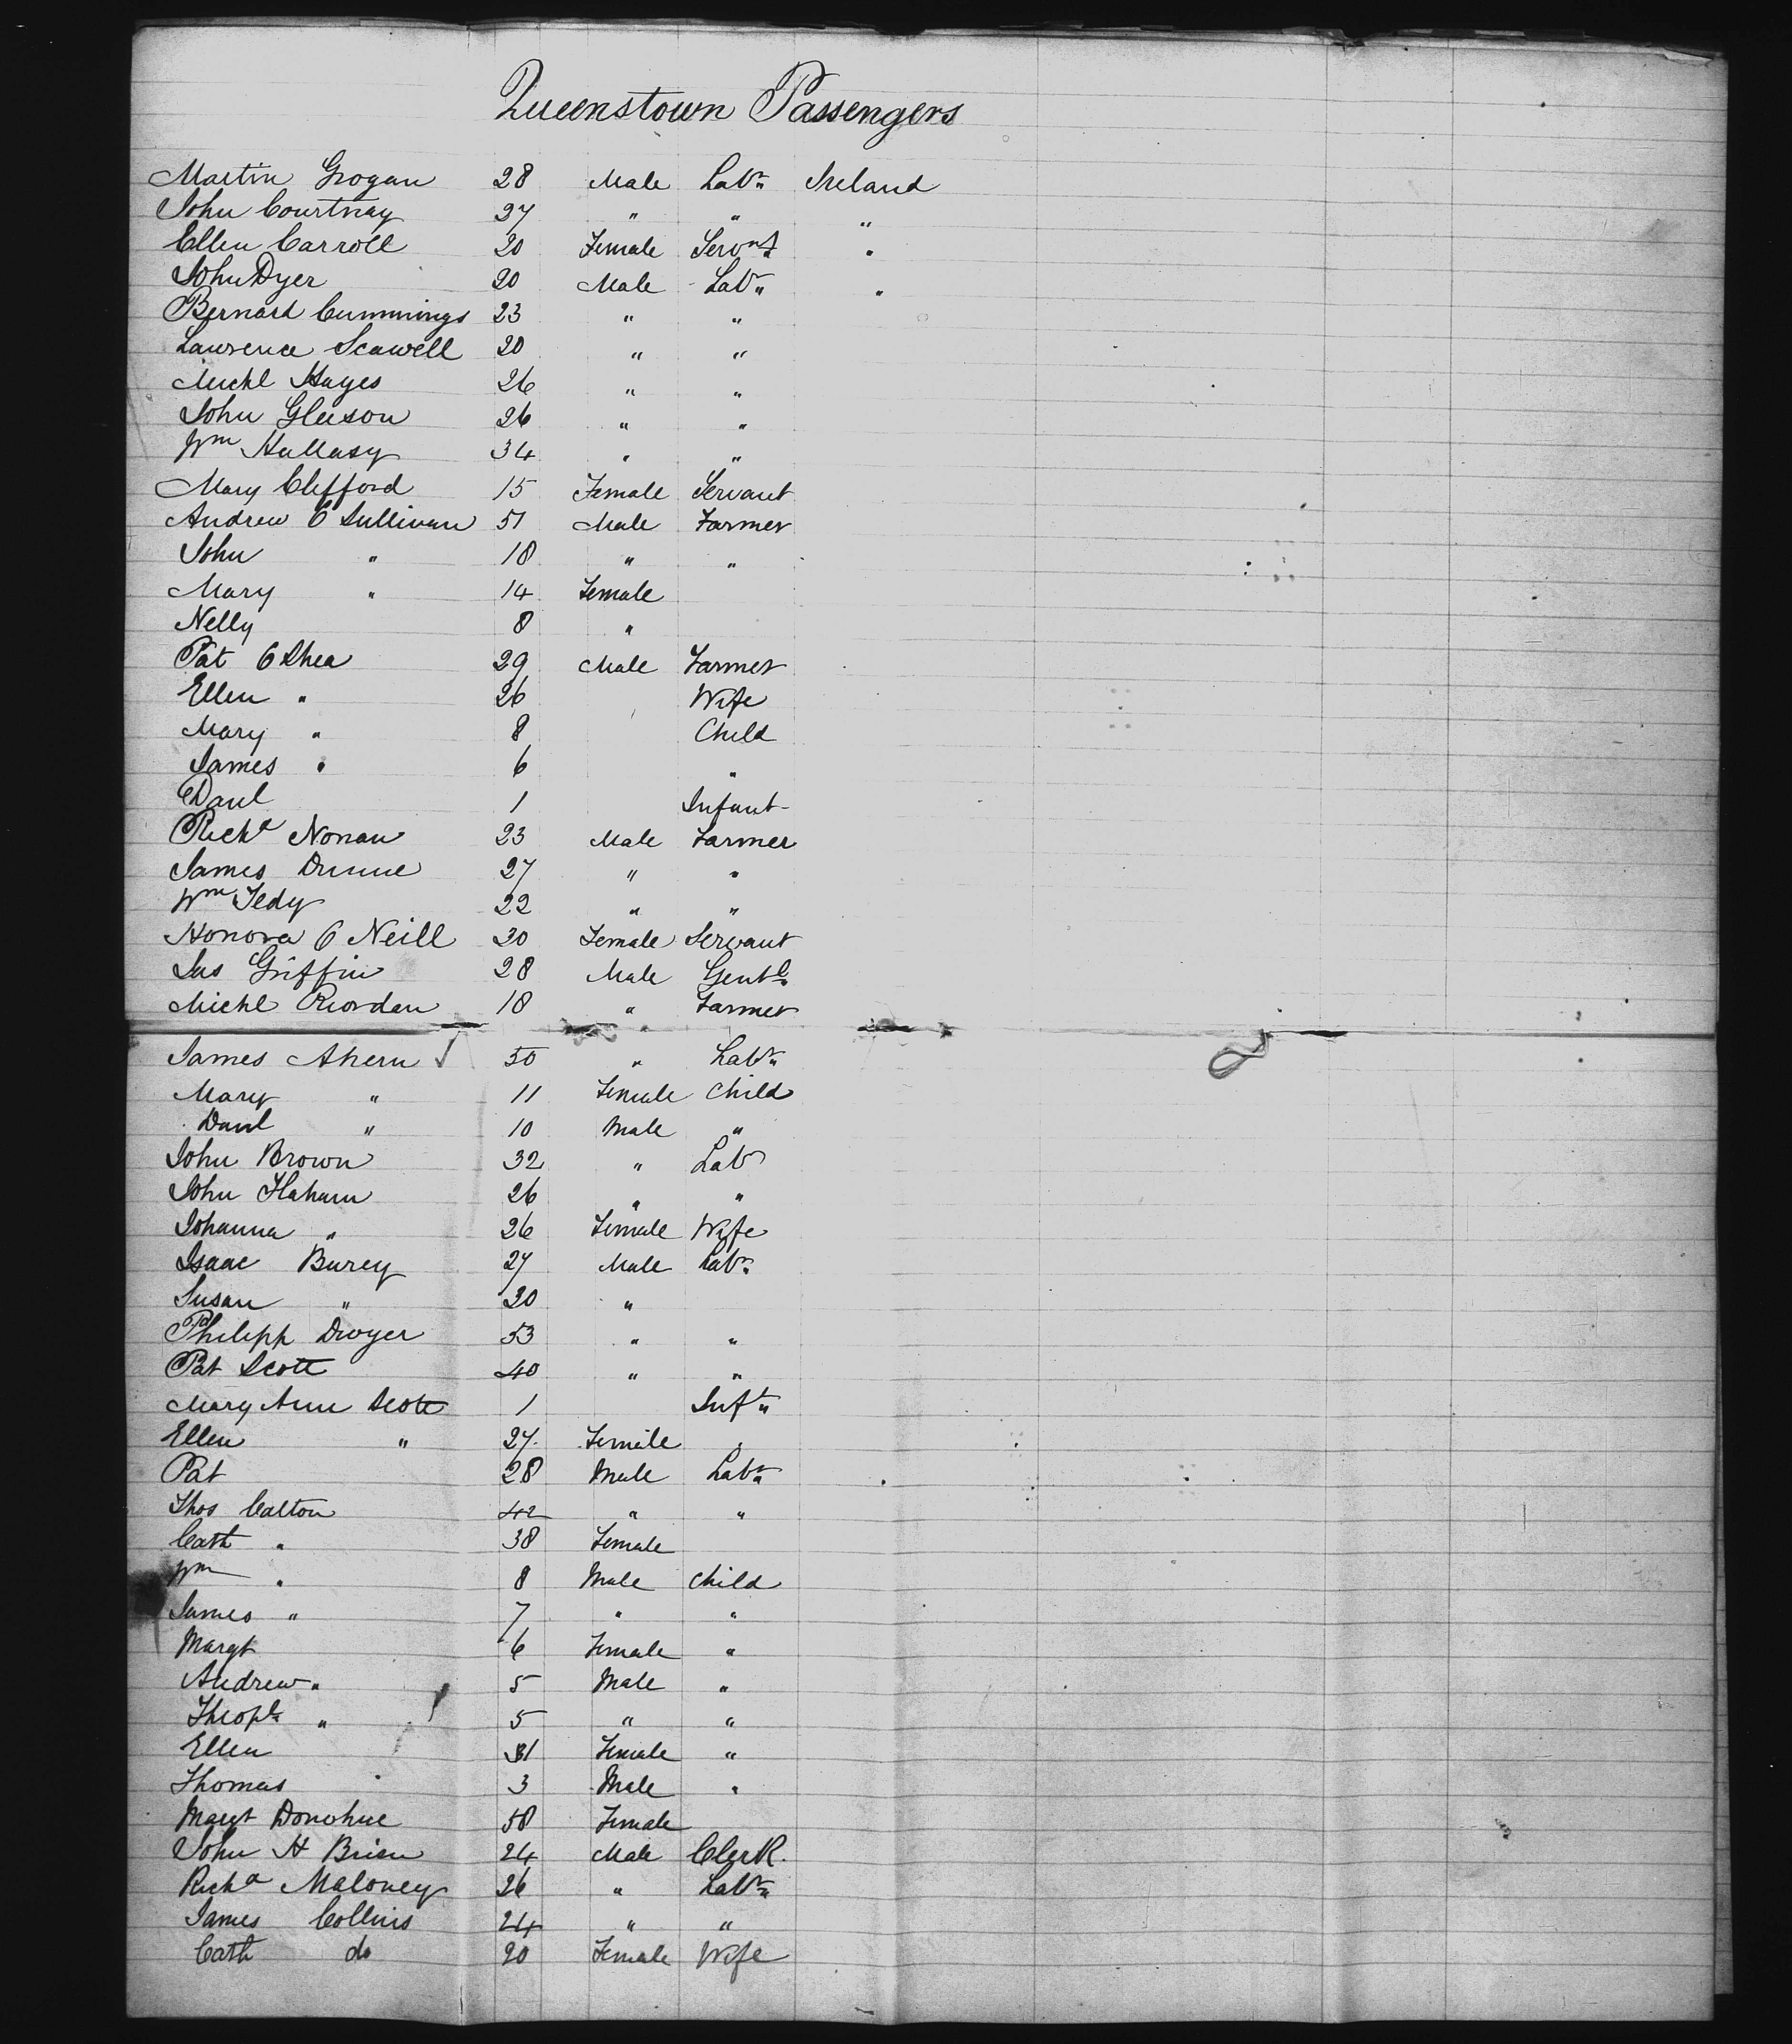 Queenstown Passengers
Martin Grogan 28 Male Labr Ireland
John Courtnay 27 " " "
Ellen Carroll 20 Female Servnt "
John Dyer 20 Male Labr "
Bernard Cummings 23 " "
Lawrence Scawell 20 " "
Michl Hayes 26 " "
John Gleeson 26 " "
Wm Hallasy 34 " "
Mary Clifford 15 Female Servant
Andrew O Sullivan 51 Male Farmer
John " 18 " "
Mary " 14 Female
Nelly 8 "
Pat O Shea 29 Male Farmer
Ellen " 26 Wife
Mary " 8 Child
James " 6 "
Danl 1 Infant
Richd Nonan 23 Male Farmer
James Dunne 27 " "
Wm 22 " "
Honora O Neill 20 Female Servant
Jas Griffin 28 Male Gentl
Michl Riordan 18 " Farmer
James Ahern 50 " Labr
Mary " 11 Female Child
Danl " 10 Male "
John Brown 32 " Labr
John 26 " "
Johanna " 26 Female Wife
Isaac Burey 27 Male Labr
Susan " 20 "
Philipp Dwyer 53 " "
Pat Scott 40 " "
Mary Ann Scott 1 Inft
Ellen " 27 Female "
Pat 28 Male Labr
Thos Calton 42 " "
Cath " 38 Female
Wm " 8 Male Child
James " 7 " "
Margt 6 Female "
Andrew " 5 Male "
Theopl " 5 " "
Ellen Female "
Thomas 3 Male "
Margt Donohue 58 Female
John H Brien 24 Male Clerk.
Richd Maloney 26 " Labr
James Collins 24 " "
Cath do 20 Female Wife